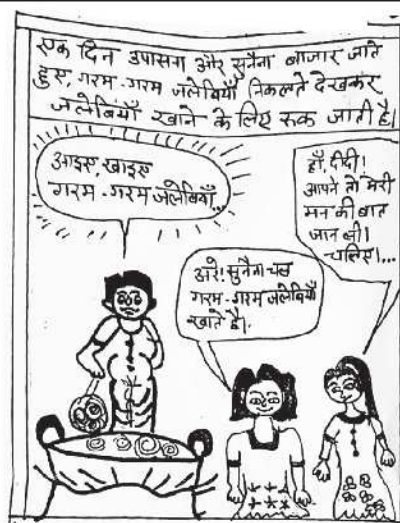 एक दिन उपासना और सुनैना बाजार जाते
हुए, गरम-गरम जलेबियाँ निकलते देखकर
जलेबियाँ खाने के लिए रूक जाती है।
आइए, खाइए
गरम-गरम जलेबियाँ...
अरे! सुनैना चल
गरम-गरम जलेबियाँ
खाते है।
हाँ दीदी!
आपने तो मेरी
मन की बात
जान ली।
चलिए।...